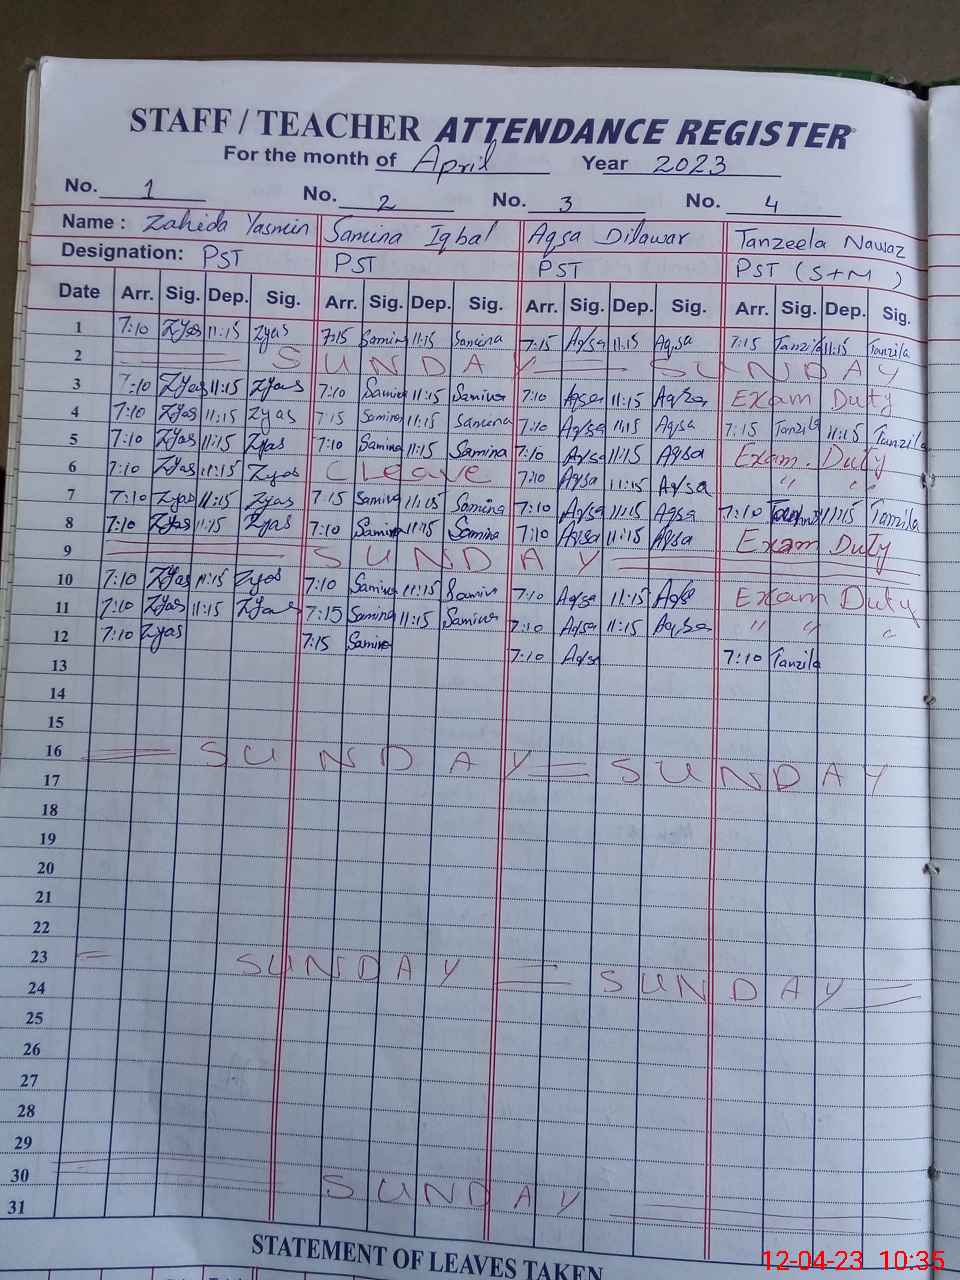 STAFF / TEACHER ATTENDANCE REGISTER
For the month of April Year 2023
No. 1 No. 2 No. 3 No. 4
Name : Zahida Yasmin Samina Iqbal Aqsa Dilawar Tanzeela Nawaz
Designation: PST PST PST PST (S+M)
Date Arr. Sig. Dep. Sig. Arr. Sig. Dep. Sig. Arr. Sig. Dep. Sig. Arr. Sig. Dep. Sig.
1 7:10 Zyas 11:15 Zyas 7:15 Samina 11:15 Samina 7:15 Aqsa 11:15 Aqsa 7:15 Tanzila 11:15 Tanzila
2 SUNDAY SUNDAY
3 7:10 Zyas 11:15 Zyas 7:10 Samina 11:15 Samina 7:10 Aqsa 11:15 Aqsa Exam Duty
4 7:10 Zyas 11:15 Zyas 7:15 Samina 11:15 Samina 7:10 Aqsa 11:15 Aqsa 7:15 Tanzila 11:15 Tanzila
5 7:10 Zyas 11:15 Zyas 7:10 Samina 11:15 Samina 7:10 Aqsa 11:15 Aqsa Exam. Duty
6 7:10 Zyas 11:15 Zyas C Leave 7:10 Aqsa 11:15 Aqsa " "
7 7:10 Zyas 11:15 Zyas 7:15 Samina 11:15 Samina 7:10 Aqsa 11:15 Aqsa 7:10 11:15 Tanzila
8 7:10 Zyas 11:15 Zyas 7:10 Samina 11:15 Samina 7:10 Aqsa 11:15 Aqsa Exam Duty
9 SUNDAY
10 7:10 Zyas 11:15 Zyas 7:10 Samina 11:15 Samina 7:10 Aqsa 11:15 Aqsa Exam Duty
11 7:10 Zyas 11:15 Zyas 7:15 Samina 11:15 Samina 7:10 Aqsa 11:15 Aqsa " " "
12 7:10 Zyas 7:15 Samina 7:10 Aqsa 7:10 Tanzila
13
14
15
16 SUNDAY SUNDAY
17
18
19
20
21
22
23 SUNDAY SUNDAY
24
25
26
27
28
29
30 SUNDAY
31
STATEMENT OF LEAVES TAKEN
12-04-23 10:35